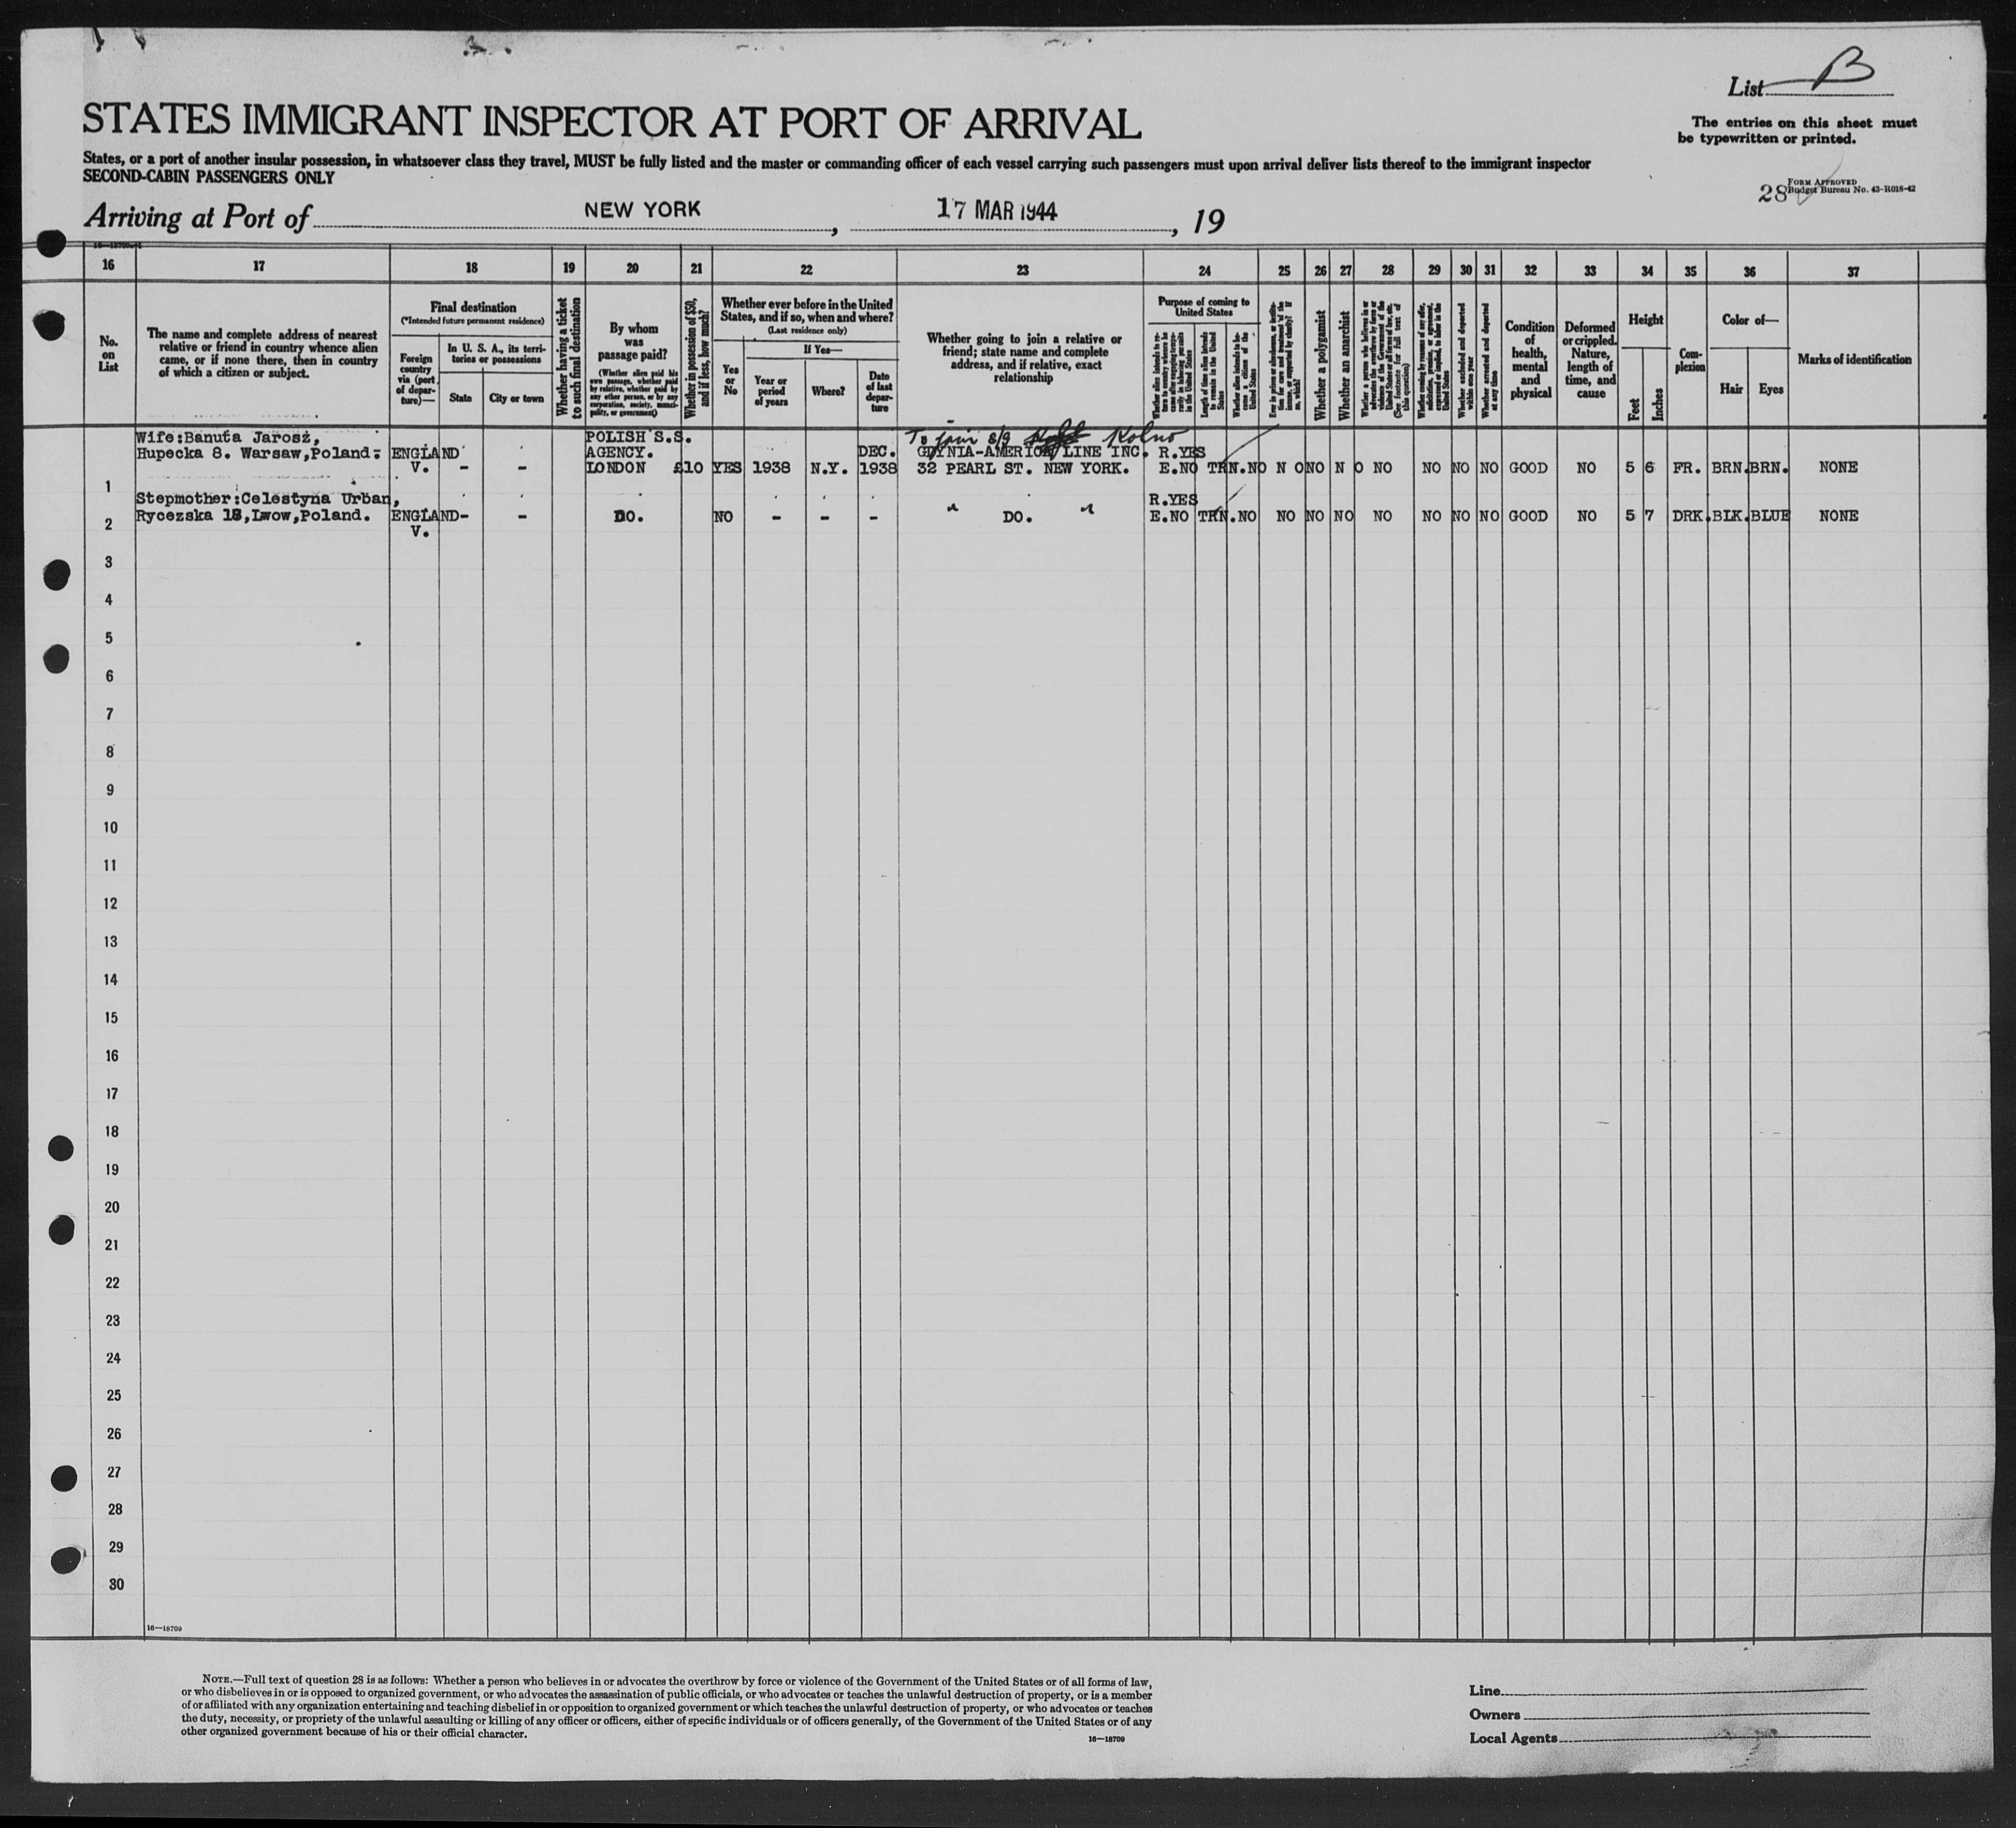 List B
STATES IMMIGRANT INSPECTOR AT PORT OF ARRIVAL
The entries on this sheet must
be typewritten or printed.
States, or a port of another insular possession, in whatsoever class they travel, MUST be fully listed and the master or commanding officer of each vessel carrying such passengers must upon arrival deliver lists thereof to the immigrant inspector
SECOND-CABIN PASSENGERS ONLY
28
FORM APPROVED
Budget Bureau No. 43-R018-42
Arriving at Port of NEW YORK, 17 MAR 1944, 19
16 17 18 19 20 21 22 23 24 25 26 27 28 29 30 31 32 33 34 35 36 37
No.
on
List
The name and complete address of nearest
relative or friend in country whence alien
came, or if none there, then in country
of which a citizen or subject.
Final destination
(*Intended future permanent residence)
Foreign
country
via (port
of depar-
ture)—
In U. S. A., its terri-
tories or possessions
State
City or town
Whether having a ticket
to such final destination
By whom
was
passage paid?
(Whether alien paid his
own passage, whether paid
by relative, whether paid by
any other person, or by any
corporation, society, munici-
pality, or government)
Whether in possession of $50,
and if less, how much?
Whether ever before in the United
States, and if so, when and where?
(Last residence only)
Yes
or
No
If Yes—
Year or
period
of years
Where?
Date
of last
depar-
ture
Whether going to join a relative or
friend; state name and complete
address, and if relative, exact
relationship
Purpose of coming to
United States
Length of time alien intends
to remain in the United
States
Whether alien intends to be-
come a citizen of the
United States
Whether a polygamist
Whether an anarchist
Whether excluded and deported
within one year
Whether arrested and deported
at any time
Condition
of
health,
mental
and
physical
Deformed
or crippled.
Nature,
length of
time, and
cause
Height
Feet
Inches
Com-
plexion
Color of—
Hair
Eyes
Marks of identification
Wife:Banuta Jarosz, POLISH S.S. To join s/s Kolno
Hupecka 8. Warsaw,Poland. ENGLAND AGENCY. DEC. GDYNIA-AMERICA LINE INC. R.YES
V. - - LONDON £10 YES 1938 N.Y. 1938 32 PEARL ST. NEW YORK. E.NO TRN.NO NO NO NO NO NO NO NO GOOD NO 5 6 FR. BRN. BRN. NONE
1
Stepmother:Celestyna Urban, R.YES
Rycezska 18,Lwow,Poland. ENGLAND- - DO. NO - - - " DO. " E.NO TRN.NO NO NO NO NO NO NO NO GOOD NO 5 7 DRK. BLK. BLUE NONE
2
V.
3
4
5
6
7
8
9
10
11
12
13
14
15
16
17
18
19
20
21
22
23
24
25
26
27
28
29
30
16—18709
NOTE.—Full text of question 28 is as follows: Whether a person who believes in or advocates the overthrow by force or violence of the Government of the United States or of all forms of law,
or who disbelieves in or is opposed to organized government, or who advocates the assassination of public officials, or who advocates or teaches the unlawful destruction of property, or is a member
of or affiliated with any organization entertaining and teaching disbelief in or opposition to organized government or which teaches the unlawful destruction of property, or who advocates or teaches
the duty, necessity, or propriety of the unlawful assaulting or killing of any officer or officers, either of specific individuals or of officers generally, of the Government of the United States or of any
other organized government because of his or their official character.
16—18709
Line
Owners
Local Agents